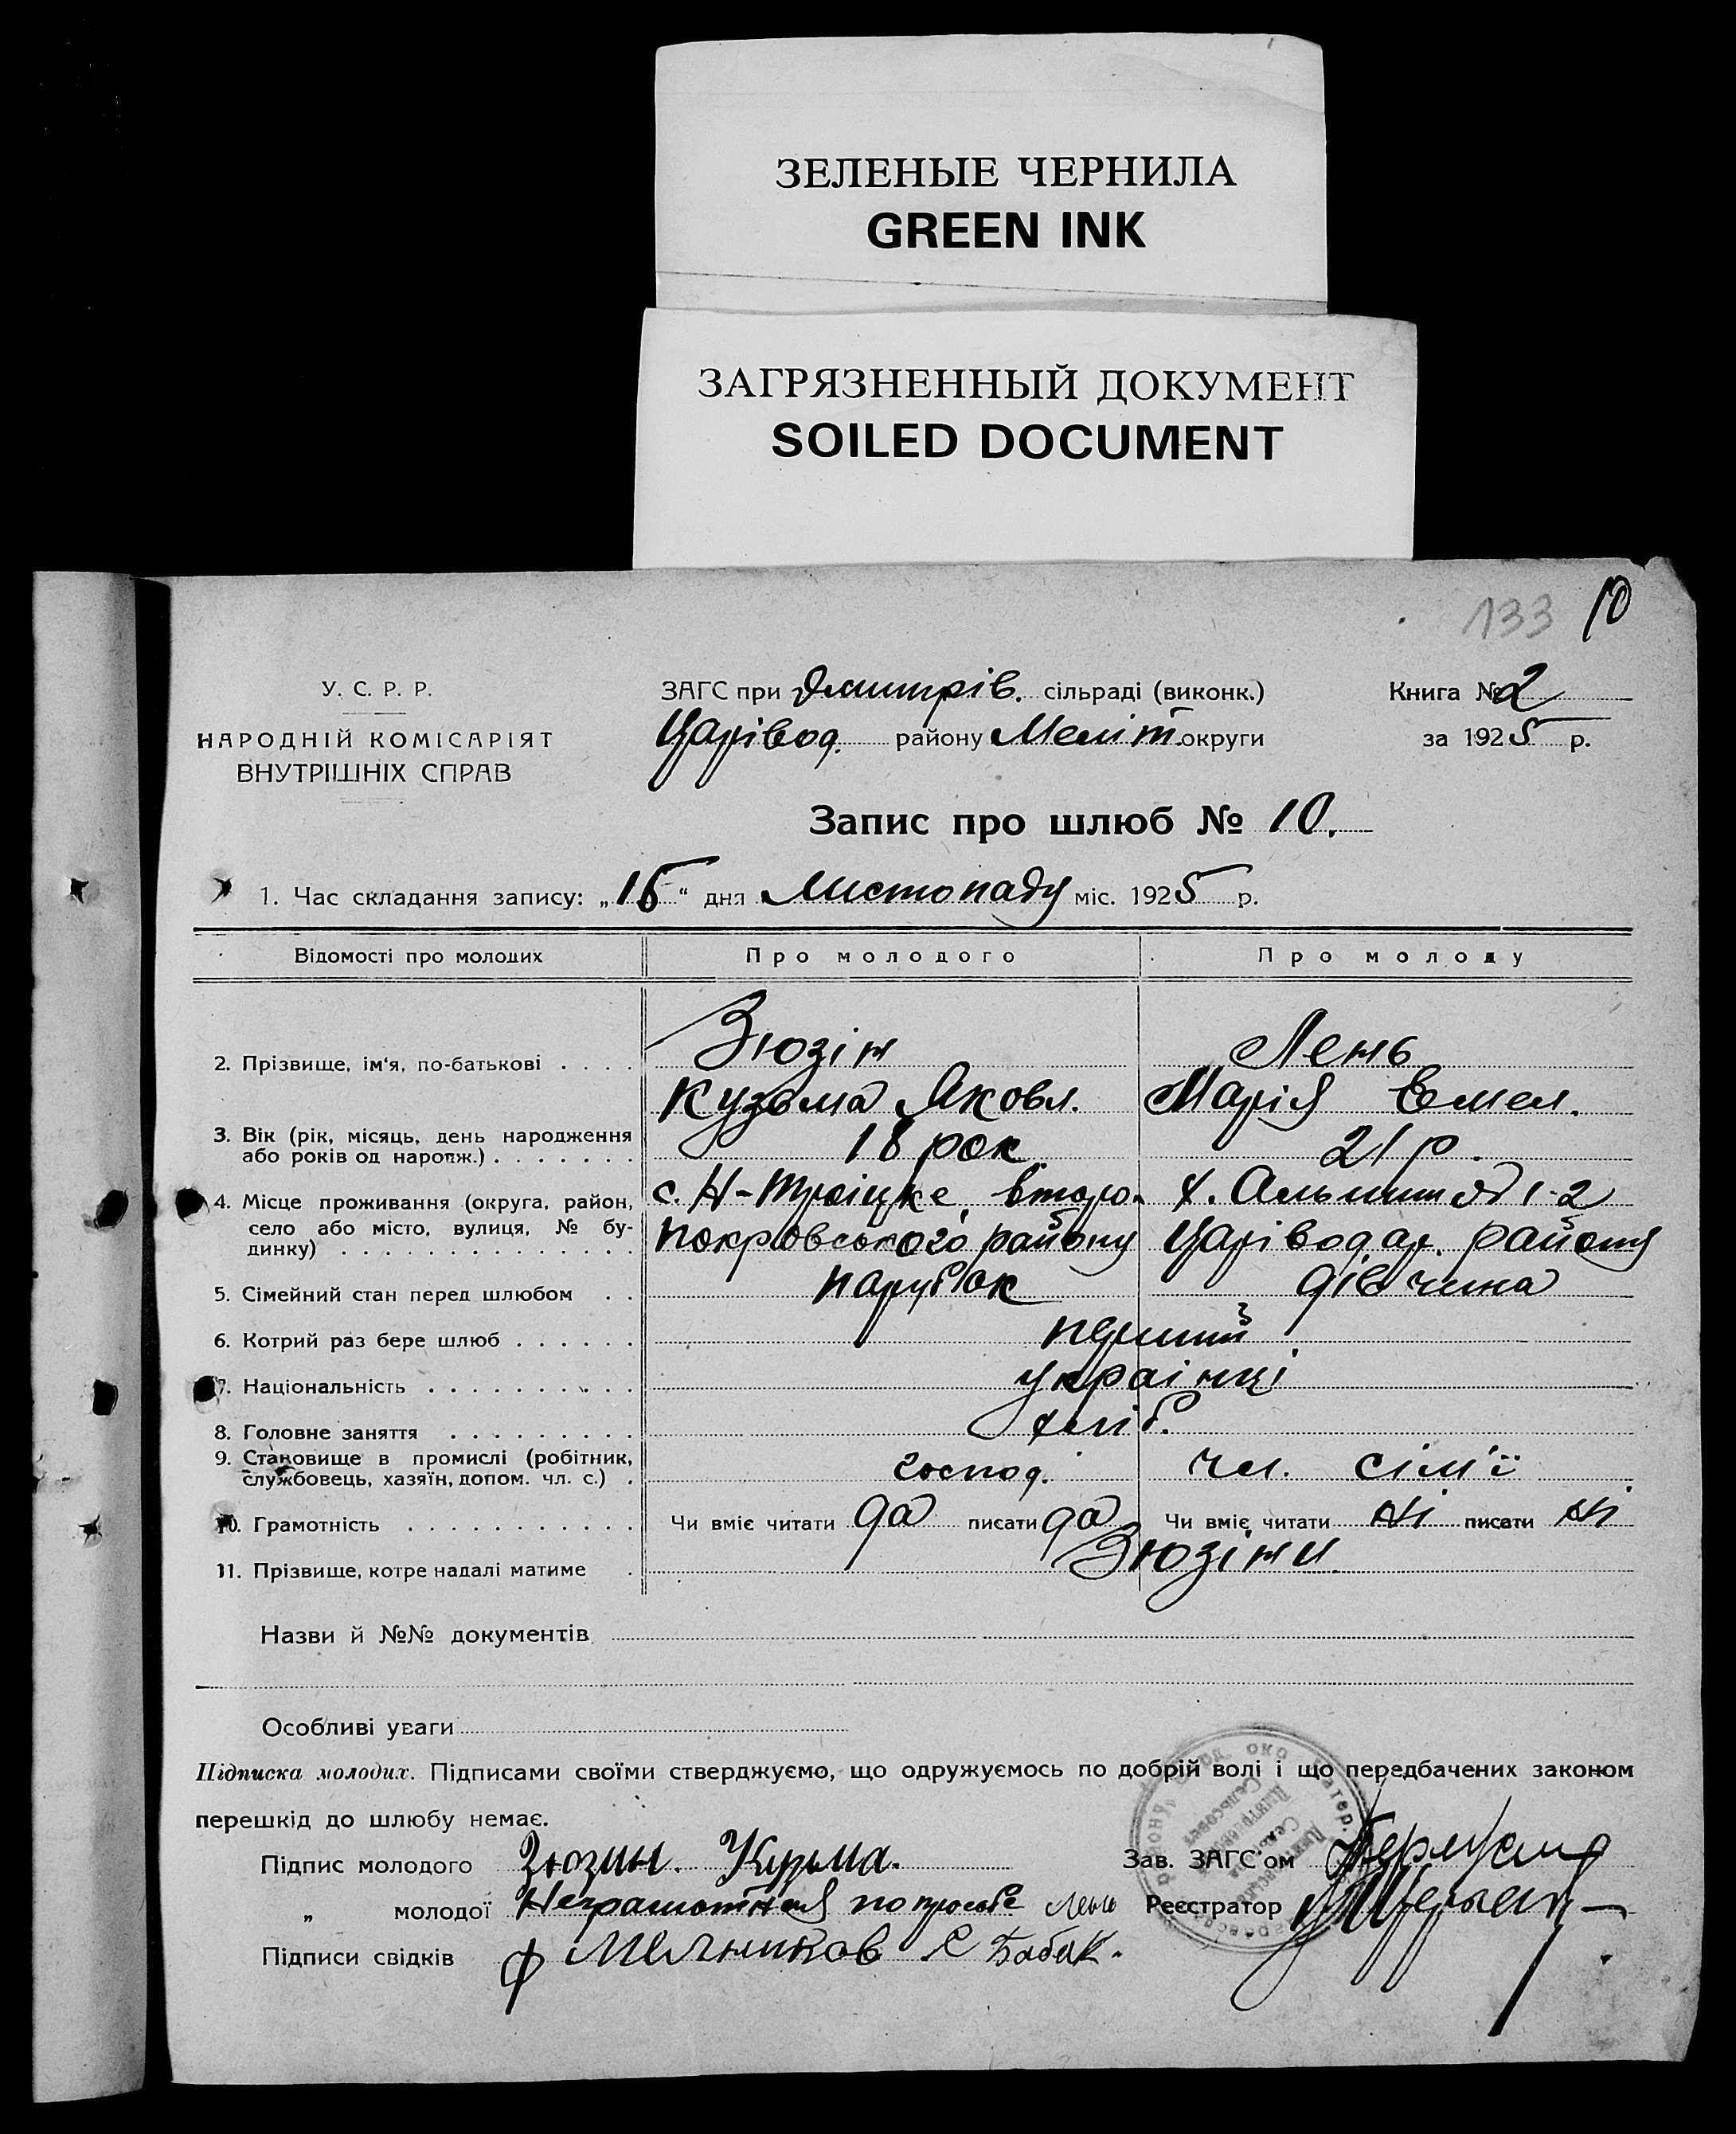 ЗЕЛЕНЫЕ ЧЕРНИЛА
GREEN INK
ЗАГРЯЗНЕННЫЙ ДОКУМЕНТ
SOILED DOCUMENT
133 10
У. С. Р. Р.
НАРОДНІЙ КОМІСАРІЯТ
ВНУТРІШНІХ СПРАВ
ЗАГС при Дмитрів. сільраді (виконк.)
Царівод. району Меліт. округи
Книга № 2
за 1925 р.
Запис про шлюб № 10.
1. Час складання запису: „15“ дня Листопаду міс. 1925 р.
Відомості про молодих Про молодого Про молоду
2. Прізвище, ім'я, по-батькові . . . . Зюзін Лень
Кузьма Яковл. Марія Емел.
3. Вік (рік, місяць, день народження
або років од нарождж.) . . . . . . . 18 рок. 21 р.
4. Місце проживання (округа, район,
село або місто, вулиця, № бу-
динку) . . . . . . . . . . . . . .
с. Н-Троіцке, второ- х. 1-2
покровського району Царівод. району
5. Сімейний стан перед шлюбом . . парубок дівчина
6. Котрий раз бере шлюб . . . . . . перший
7. Національність . . . . . . . . . . украінці
8. Головне заняття . . . . . . . . . хліб.
9. Становище в промислі (робітник,
службовець, хазяїн, допом. чл. с.) . господ. чл. сім'ї
10. Грамотність . . . . . . . . . . . Чи вміє читати да писати да Чи вміє читати ні писати ні
11. Прізвище, котре надалі матиме . Зюзіни
Назви й №№ документів
Особливі уваги
Підписка молодих. Підписами своїми стверджуємо, що одружуємось по добрій волі і що передбачених законом
перешкід до шлюбу немає.
Підпис молодого Зюзин. Кузьма. Зав. ЗАГС'ом
„ молодої Неграмотная по просьбе Лень Реєстратор
Підписи свідків Ф Мельников С Бабак.